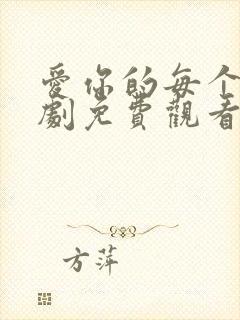 愛你的每个
劇免費觀看
方萍